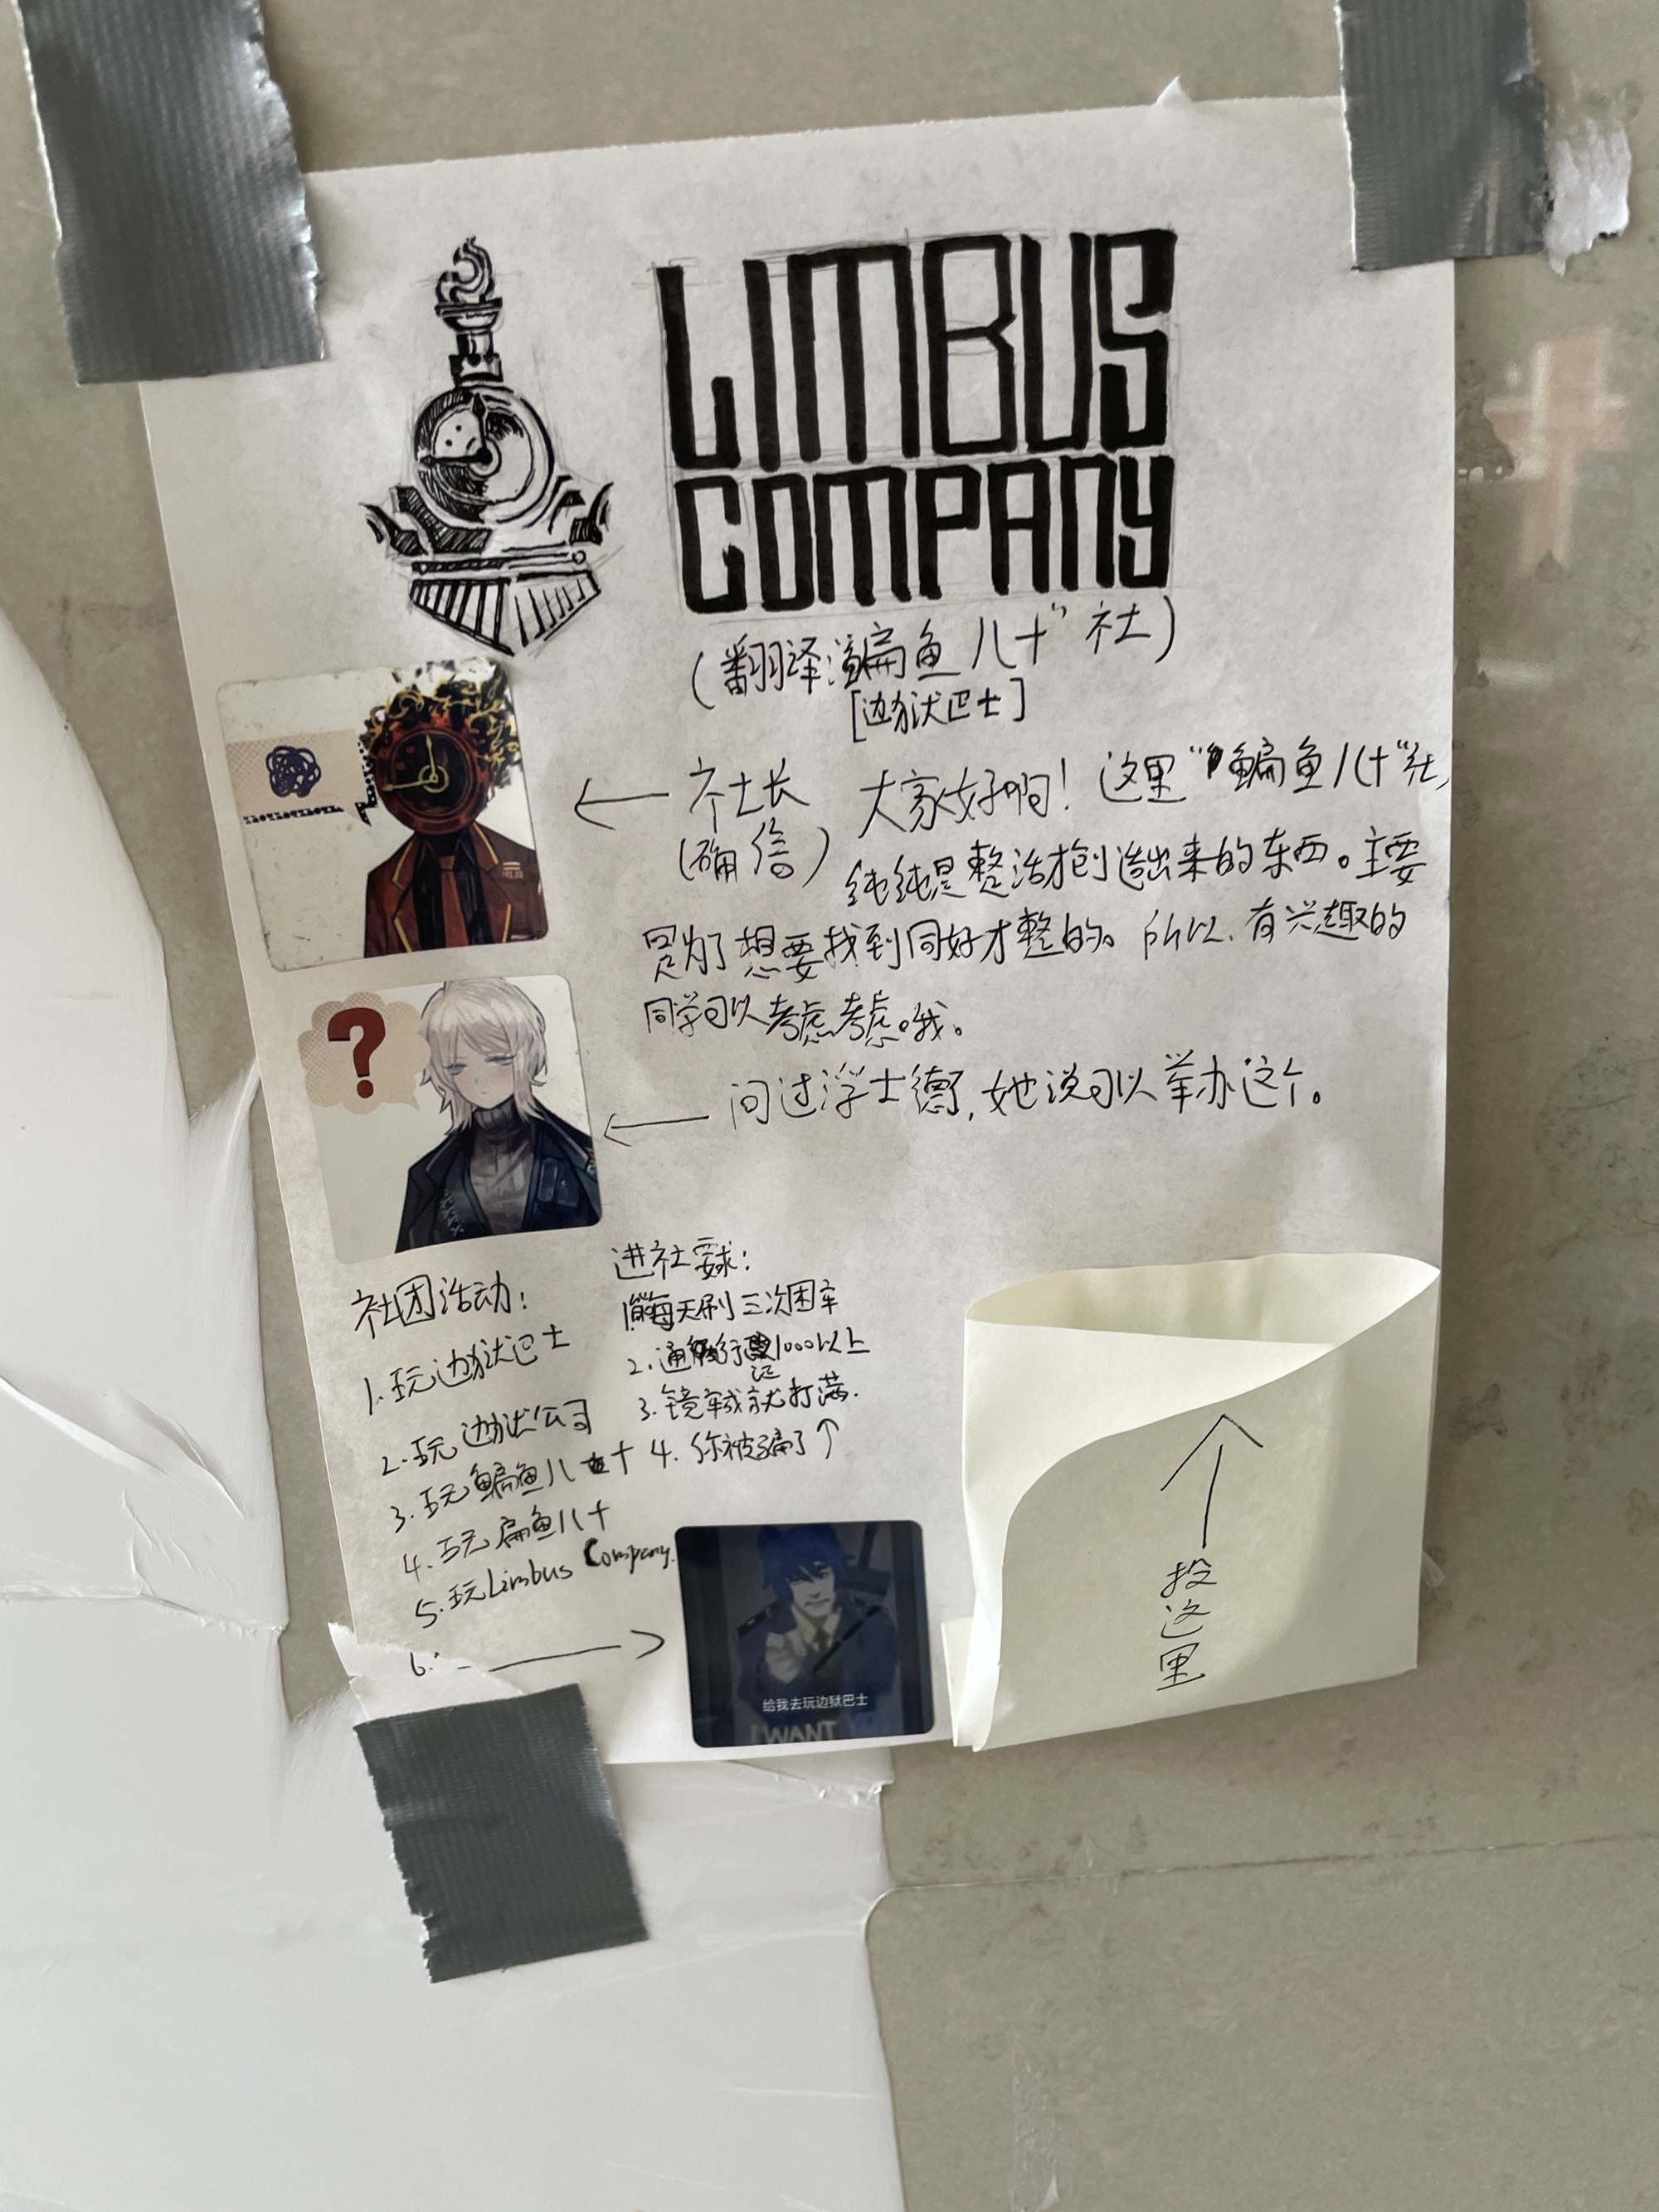 LIMBUS
COMPANY
(翻译:鳊鱼八十"社)
[边狱巴士]
社长
(确信)
大家好啊!这里"鳊鱼八十"社,
纯纯是整活才创造出来的东西。主要
是为了想要找到同好才整的。所以,有兴趣的
同学可以考虑考虑。哦。
?
问过浮士德了,她说可以举办这个。
社团活动:
1.玩边狱巴士
2.玩边狱公司
3.玩鳊鱼八十
4.玩扁鱼八十
5.玩Limbus Company.
6.
进社要求:
每天刷三次困车
2.通行证1000以上
3.镜牢就打满.
4.你被骗了↑
给我去玩边狱巴士
I WANT
投这里